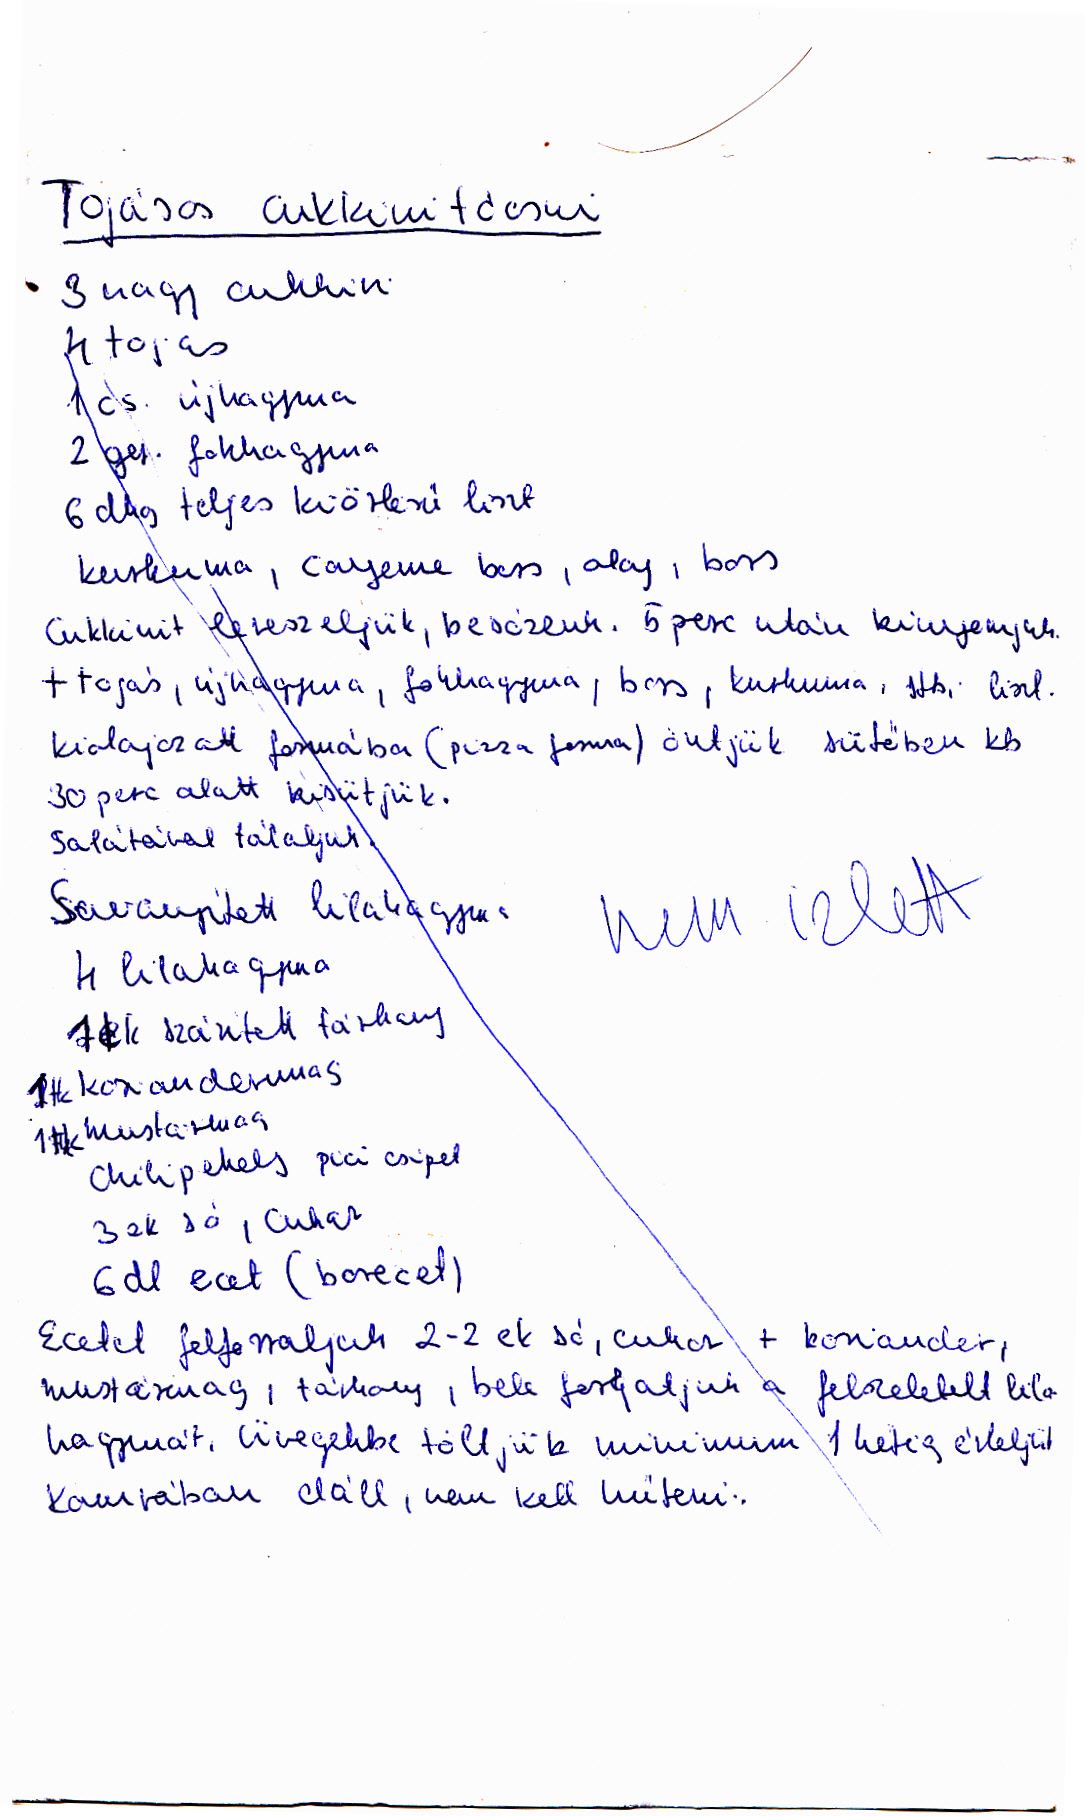 Tojásos cukkinitócsni
3 nagy cukkini
4 tojás
1 cs. újhagyma
2 ger. fokhagyma
6 dkg teljes kiőrlésű liszt
kurkuma, cayenne bors, olaj, bors
Cukkinit lereszeljük, besózzuk. 5 perc után kinyomjuk.
+ tojás, újhagyma, fokhagyma, bors, kurkuma, stb, liszt.
kiolajozott formába (pizza forma) öntjük sütőben kb
30 perc alatt kisütjük.
Salátával tálaljuk.
Savanyított lilahagyma
nem izlett
4 lilahagyma
1 ek szárított tárkony
1 tk koriandermag
1 tk mustármag
Chilipehely pici csipet
3 ek só, cukor
6 dl ecet (borecet)
Ecetet felforraljuk 2-2 ek só, cukor + koriander,
mustármag, tárkony, bele forgatjuk a felszeletelt lila
hagymát. Üvegekbe töltjük minimum 1 hétig érleljük
Kamrában eláll, nem kell hűteni.